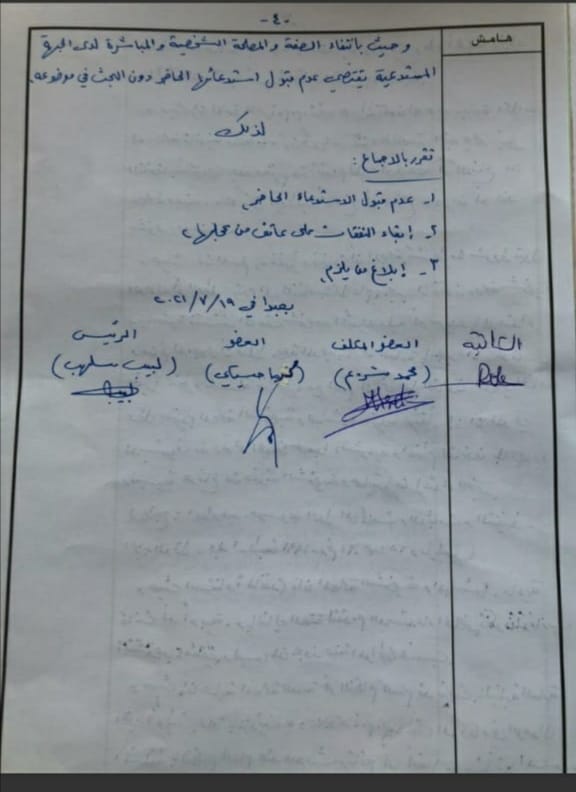 - ٤ -
هامش
وحيث بانتفاء الصفة والمصلحة الشخصية والمباشرة لدى الجهة
المستدعية يقتضي عدم قبول استدعائها الحاضر دون البحث في موضوعه.
لذلك
تقرر بالاجماع :
١- عدم قبول الاستدعاء الحاضر
٢- إبقاء النفقات على عاتق من عجلها
٣- إبلاغ من يلزم
بعبدا في ٢٠٢١/٧/١٩
الكاتبة العضو المكلف العضو الرئيس
(محمد شرم) ( حسيكي) (لبيب سلهب)